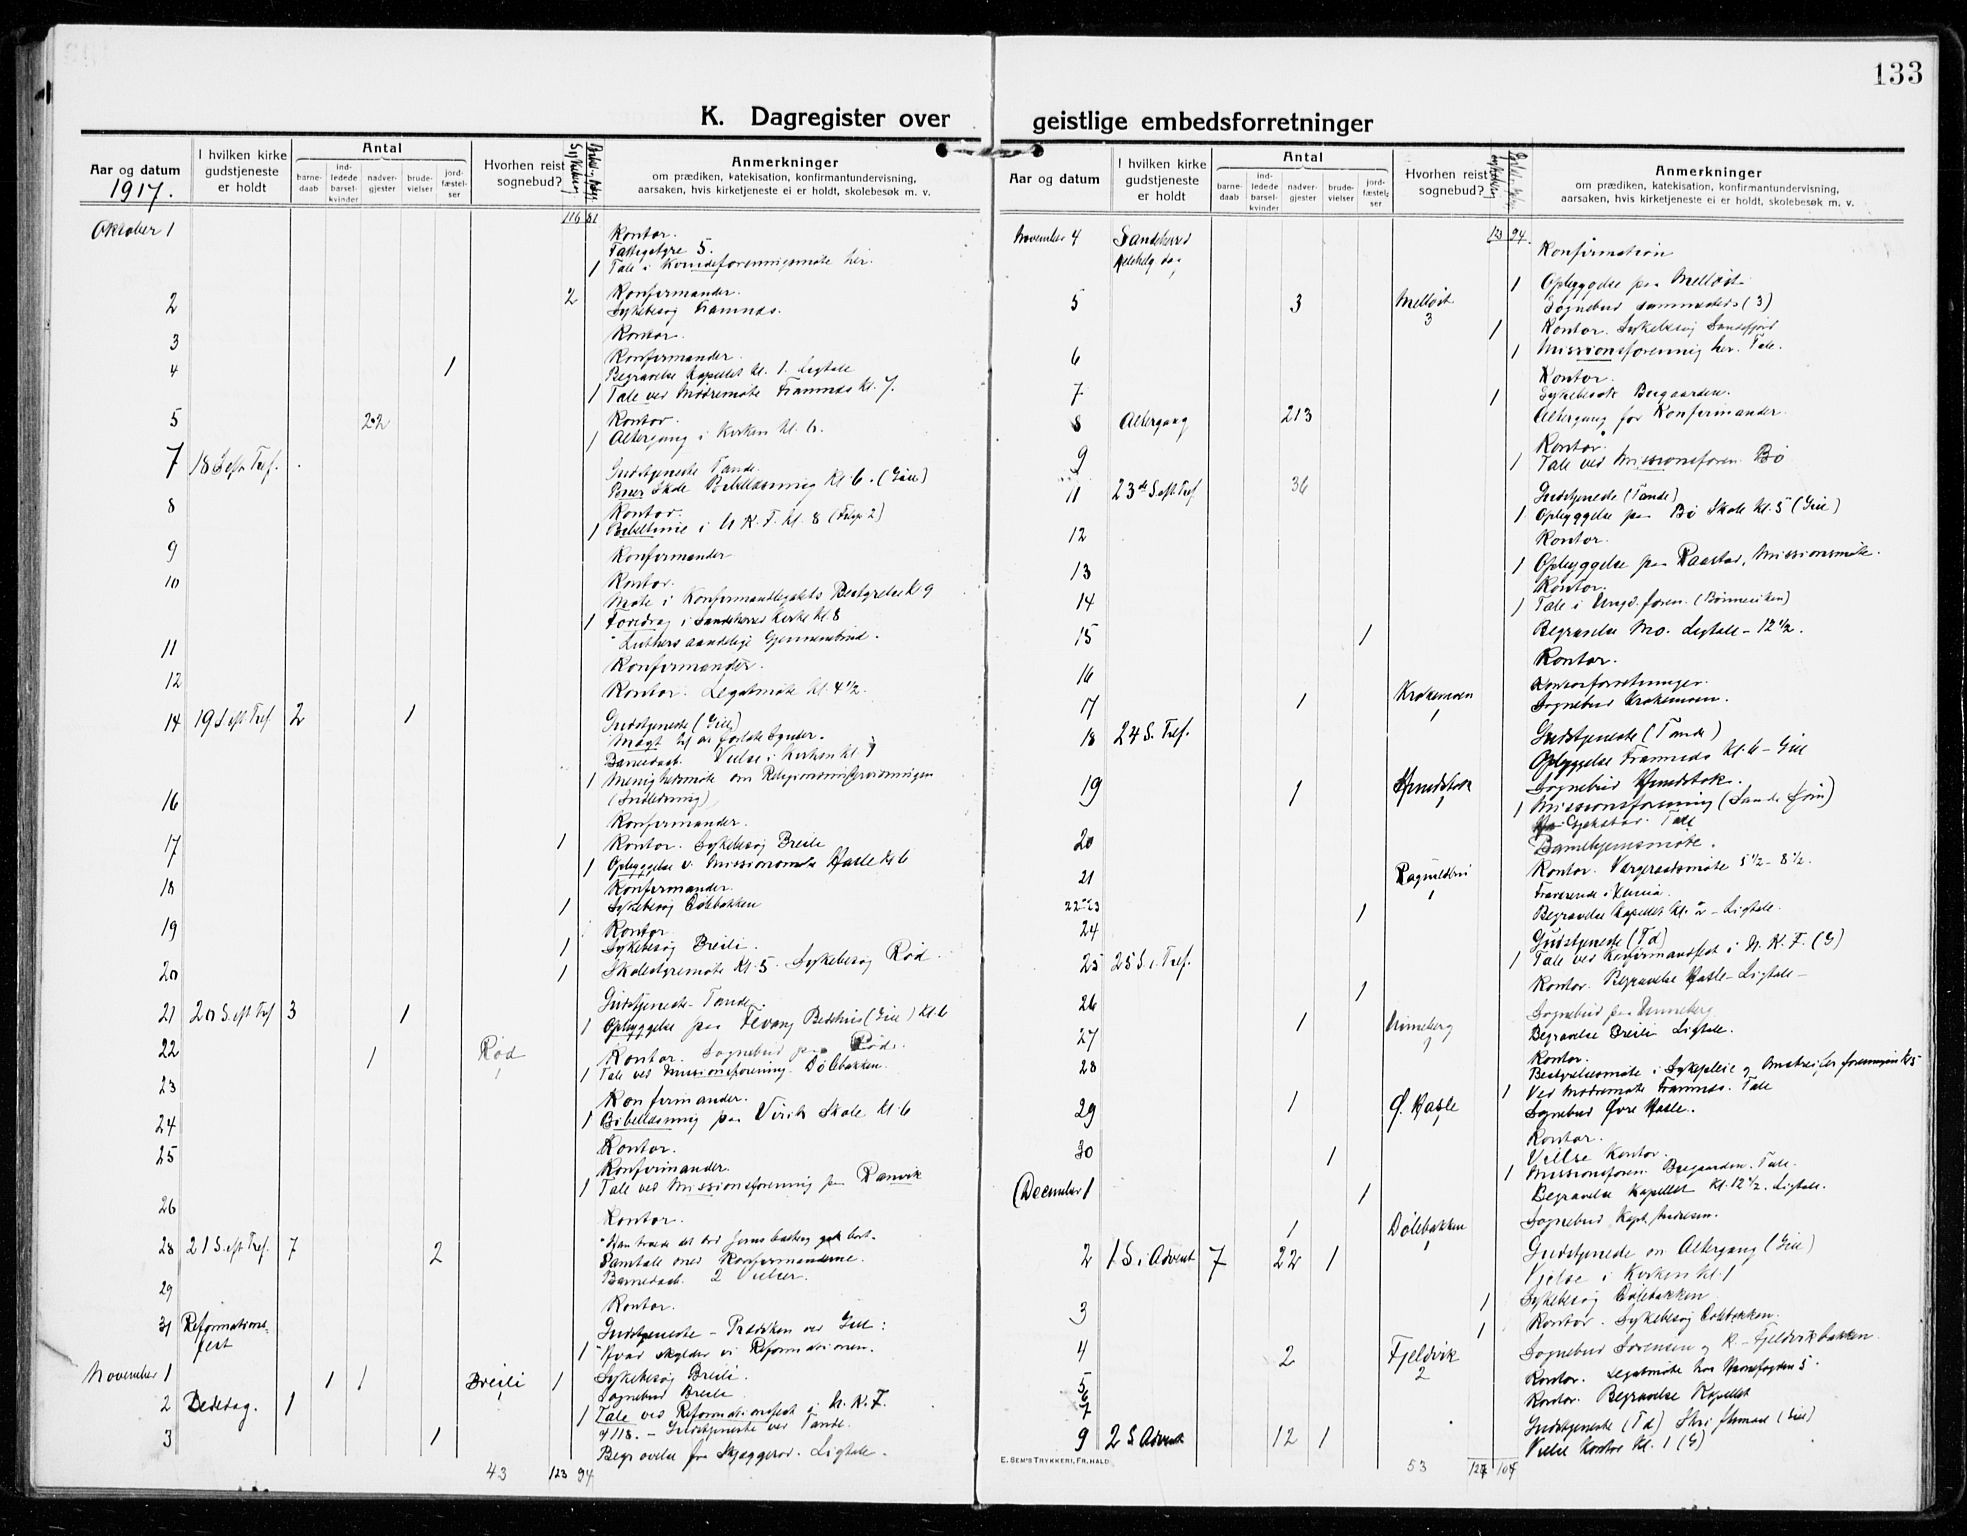 133
K. Dagregister over geistlige embedsforretninger
Aar og datum
1917.
I hvilken kirke gudstjeneste er holdt
Antal
barne-daab
ind-ledede barsel-kvinder
nadver-gjester
brude-vielser
jord-fæstel-ser
Hvorhen reist i sognebud?
Anmerkninger
om prædiken, katekisation, konfirmantundervisning,
aarsaken, hvis kirketjeneste ei er holdt, skolebesøk m. v.
116 81
Oktober 1 Kontor.
Fattigstyre 5.
1 Tale i Kvindeforeningsmøte her.
2 2 Konfirmander.
Sykebesøg Framnæs.
3 Kontor.
4 1 Konfirmander.
Begravelse Kapellet kl. 1. Ligtale
1 Tale ved Mødremøte Framnæs kl. 7.
5 22 Kontor.
1 Altergang i Kirken kl. 6.
7 18 S. eft. Tref. Gudstjeneste Tande.
Skole Bibellæsning kl. 6. (Gill)
8 Kontor.
1 Bibeltime i U. K. F. kl. 8
9 Konfirmander
10 Kontor.
Møte i Konfirmandlegatets Bestyrelse kl 9
1 Foredrag i Sandeherred Kirke kl. 8
"Luthers aandelige Gjennembrud.
11 Konfirmander.
12 Kontor. Legatmøte kl. 4 1/2.
14 19 S. eft. Tref. 2 1 Gudstjeneste (Gill)
Magt til at forlate Synder.
Barnedaab. Vielse i Kirken kl. 1
1 Menighetsmøte om Religionsundervisningen
(Indledning)
16 Konfirmander.
17 1 Kontor. Sykebesøg Breili
1 Opbyggelse v. Missionsmøte Hasle kl. 6
18 Konfirmander.
1 Sykebesøg Dølebakken
19 Kontor
1 Sykebesøg Breili.
20 1 Skolestyremøte kl. 5. Sykebesøg Rød.
21 20 S. eft. Tref 3 1 Gudstjeneste - Tande.
1 Opbyggelse paa Fevang Bedehus (Gill) kl. 6
22 1 Rød 1 Kontor. Sognebud paa Rød.
1 Tale ved Missionsforening. Dølebakken.
23 Konfirmander.
24 1 Bibellæsning paa Virik Skole kl. 6
25 Kontor.
Konfirmander.
1 Tale ved Missionsforening paa Ranvik
26 Kontor.
28 21 S. eft Tref. 7 2 "Han troede det ord Jesus gik bort.
Samtale med Konfirmanderne.
Barnedaab. 2 Vielser.
29 Kontor.
31 Reformations-fest Gudstjeneste - Prædiken ved Gill:
1 "Hvad skylder vi Reformationen.
November 1 1 1 Breili 1 1 Sykebesøg Breili.
Sognebud Breili.
2 Bededag. 1 1 Tale ved Reformationsfest i U. K. F.
- Gudstjeneste ved Tande.
3 1 Begravelse fra Skjæggerød. Ligtale.
43 123 94
Aar og datum
I hvilken kirke gudstjeneste er holdt
Antal
barne-daab
ind-ledede barsel-kvinder
nadver-gjester
brude-vielser
jord-fæstel-ser
Hvorhen reist i sognebud?
Anmerkninger
om prædiken, katekisation, konfirmantundervisning,
aarsaken, hvis kirketjeneste ei er holdt, skolebesøk m. v.
123 94.
November 4 Sandeherred
Allehelg. dag Konfirmation
1 Opbyggelse paa Melløst
5 3 Melløst 3 Sognebud sammesteds (3)
1 Kontor. Sykebesøg Sandefjord
6 1 Missionsforening her. Tale.
7 Kontor.
1 Sykebesøk Bugaarden.
8 Altergang 213 Altergang for Konfirmander.
9 Kontor.
1 Tale ved Missionsforen. Bø
11 23de S. eft Tref 36 Gudstjeneste (Tande)
1 Opbyggelse paa Bø Skole kl. 5 (Gill)
12 Kontor.
13 1 Opbyggelse paa Raastad, Missionsmøte.
14 Kontor.
1 Tale i Ungd. foren. (Bønneviken)
15 1 Begravelse Mo. Ligtale - 12 1/2.
16 Kontor.
Kontorforretninger.
17 1 Krokemoen 1 Sognebud Krokemoen.
18 24 S. Tref. Gudstjeneste (Tande)
Opbyggelse Framnæs kl. 6 - Gill
19 1 Hundstok 1 Sognebud Hundstok.
1 Missionsforening
Gjekstad. Tale
20 Barnehjemsmøte.
21 Ragnildsrød 1 Kontor. Vergeraadsmøte 5 1/2 - 8 1/2.
22 og 23 Fraværende i
24 1 Begravelse Kapellet kl. 2 - Ligtale.
25 25 S. e. Tref. Gudstjeneste (Td)
1 Tale ved Konfirmandfest i U. K. F. (G)
26 1 Kontor. Begravelse Hasle - Ligtale -
27 1 Unneberg 1 Sognebud paa Unneberg
Begravelse Breili Ligtale.
28 Kontor.
Bestyrelsesmøte i Sykepleie og foreningen kl. 5
1 Ved Mødremøte Framnæs. Tale
29 1 Ø. Hasle 1 Sognebud Øvre Hasle.
30 Kontor.
1 Vielse Kontor.
1 Missionsforen. Bugaarden. Tale.
December 1 1 Begravelse Kapellet kl. 12 1/2. Ligtale.
1 Dølebakken 1 Sognebud Kapt. Andresen.
2 1 S. i Advent 7 22 1 Gudstjeneste og Altergang (Gill)
Vielse i Kirken kl. 1
1 Sykebesøg Dølebakken
3 1 Kontor. Sykebesøg Dølebakken.
4 2 Fjeldvik 2 Sognebud Sørensen og K - Fjeldvikbakken.
5 Kontor. Legatmøte hos Havnefogden 5.
6 Kontor. Begravelse Kapellet
7
9 2 S. Advent 12 1 Gudstjeneste (Td) (Gill)
Vielse Kontor kl. 1 (G)
53 104
E. SEM'S TRYKKERI, FR.HALD